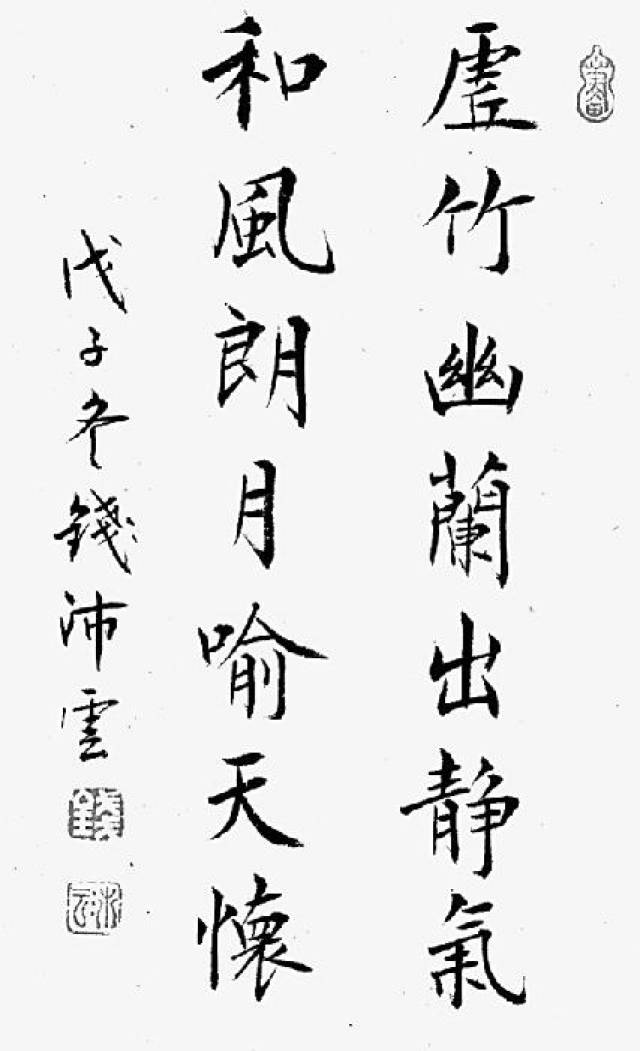 虛竹幽蘭出静氣
和風朗月喻天懷
戊子冬錢沛雲